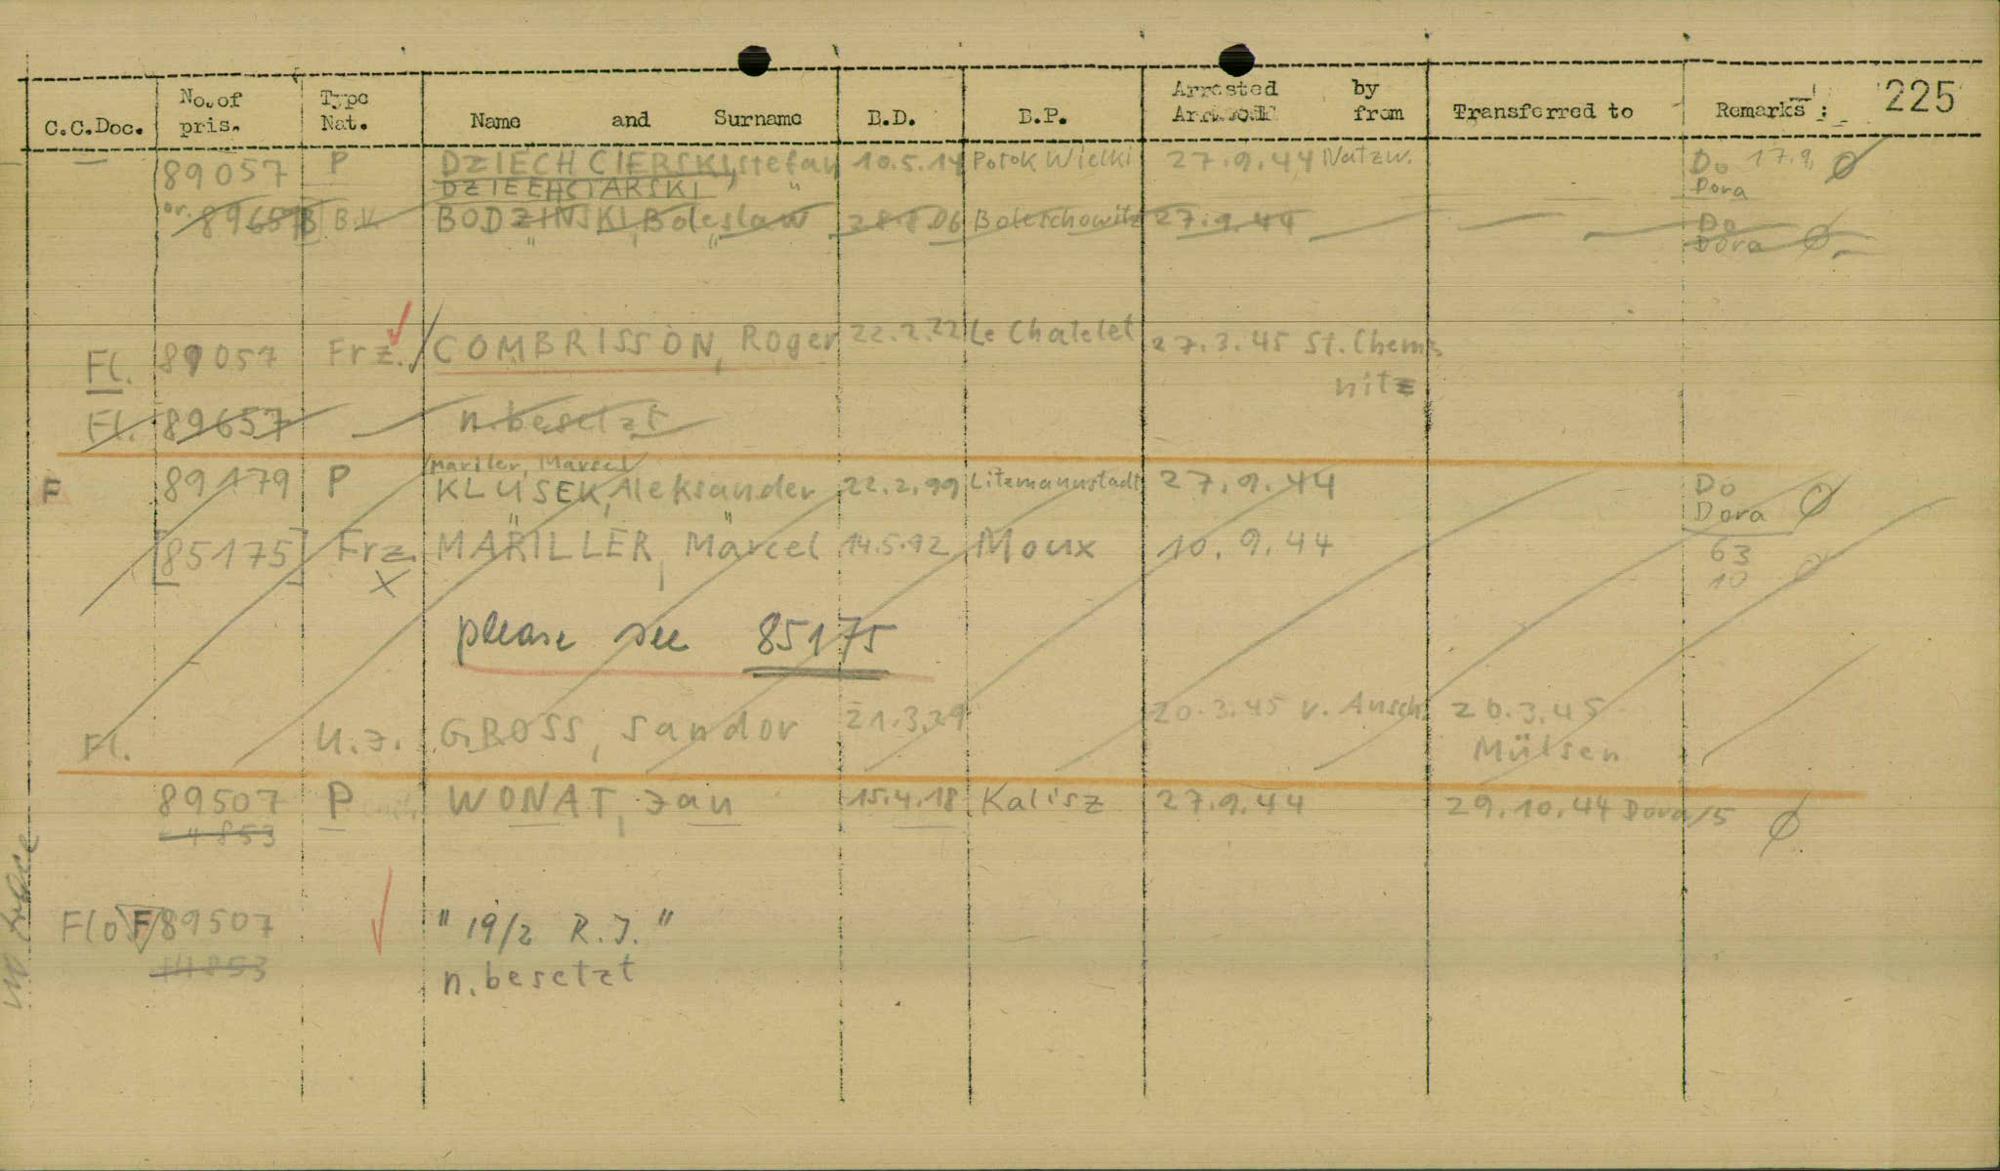 C.C.Doc. No. of pris. Type Nat. Name and Surname B.D. B.P. Arrested by from Transferred to Remarks : 225
89057 P DZIECH CIERSKI, Stefan 10.5.14 Potok Wielki 27.9.44 Natzw. Do 17.9. Ø
DZIECHCIARSKI " Dora
or. 89657 B.V. BODZINSKI, Boleslaw 28.8.06 Bolerchowitz 27.9.44 Do
Dora Ø
Fl. 89057 Frz. COMBRISSON, Roger 22.2.22 Le Chatelet 27.3.45 St. Chem
nitz
Fl. 89657 n. besetzt
Mariler, Marcel
F 89179 P KLUSEK, Aleksander 22.2.99 Litzmannstadt 27.9.44 Do
Dora Ø
[85175] Frz. MARILLER, Marcel 14.5.92 Moux 10.9.44 63
X 10 Ø
please see 85175
Fl. U.J. GROSS, Sandor 21.3.29 20.3.45 v. Ausch. 20.3.45
Mülsen
89507 P WONAT, Jan 15.4.18 Kalisz 27.9.44 29.10.44 Dora/5 Ø
4853
no trace
Flo F 89507 " 19/2 R.J. "
14853 n. besetzt